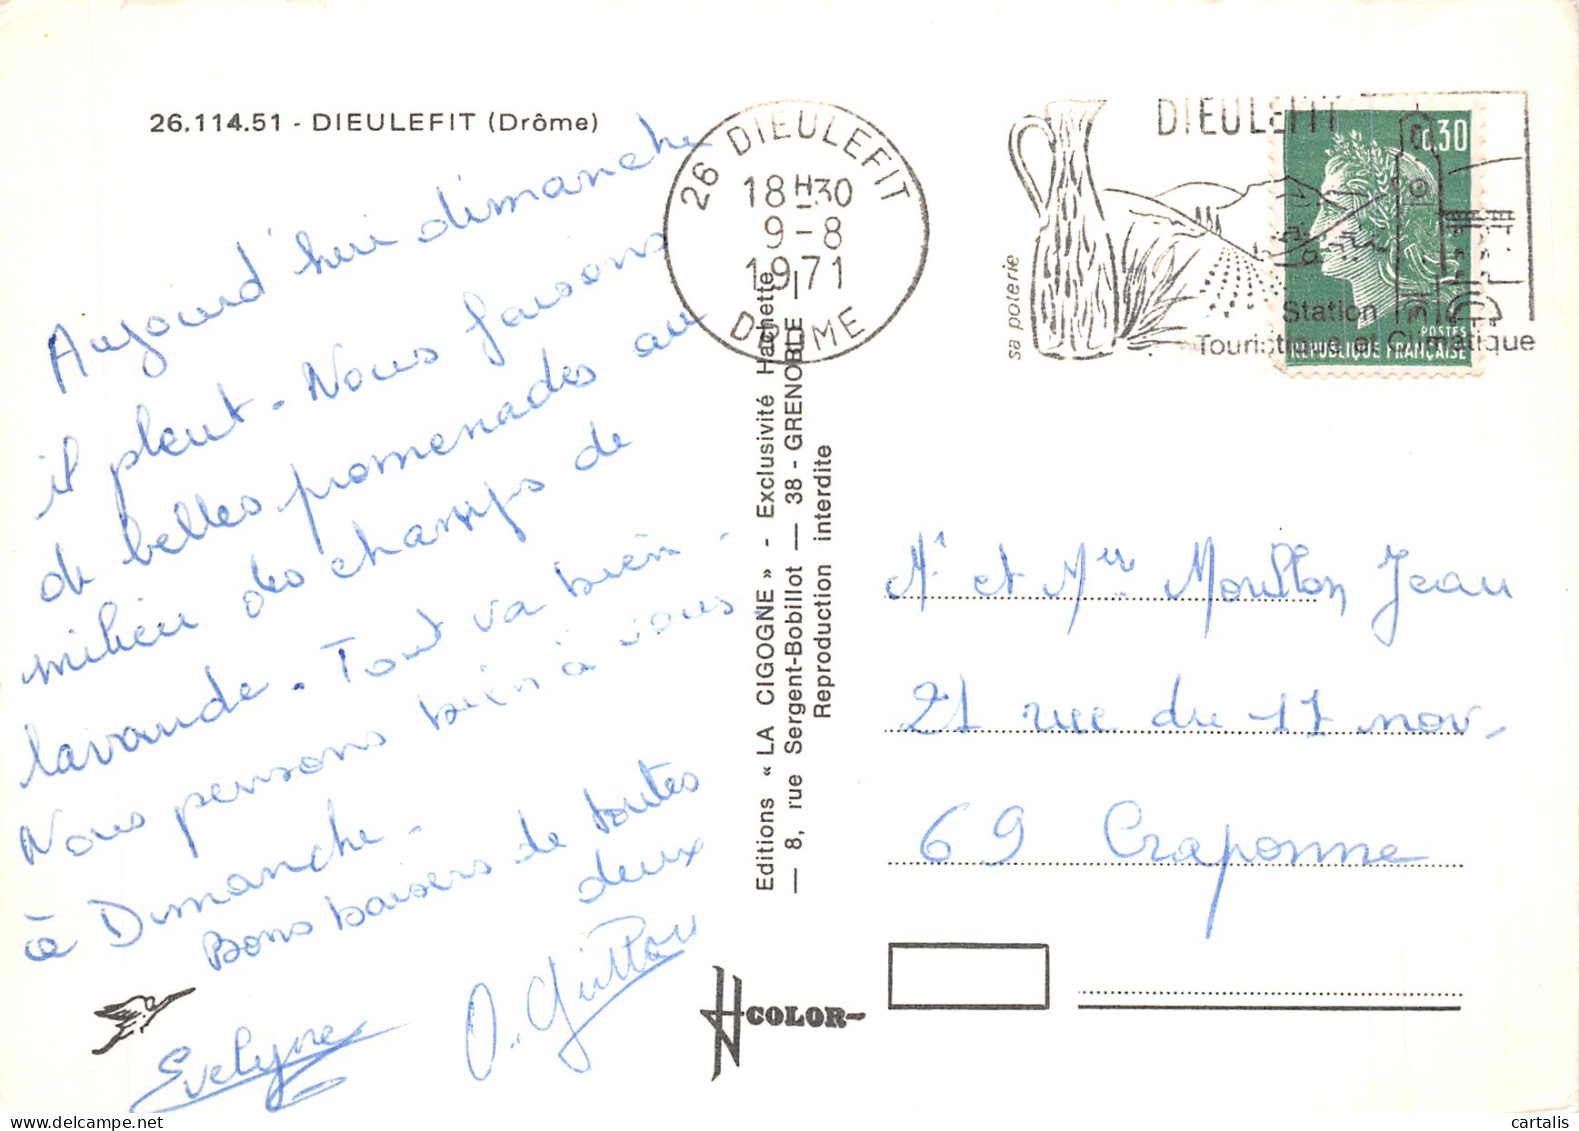 26.114.51 - DIEULEFIT (Drôme)
Aujourd'hui dimanche
il pleut - Nous faisons
de belles promenades au
milieu des champs de
lavande. Tout va bien.
Nous pensons bien à vous.
à Dimanche.
Bons baisers de toutes
deux
Evelyne
26 DIEULEFIT
18 H 30
9-8
1971
DROME
DIEULEFIT
sa poterie
Station
Touristique et Climatique
0,30
POSTES
REPUBLIQUE FRANÇAISE
Editions « LA CIGOGNE » - Exclusivité Hachette
— 8, rue Sergent-Bobillot — 38 - GRENOBLE —
Reproduction interdite
Mr et Mme Moullon Jean
21 rue du 11 nov.
69 Craponne
COLOR
cartalis